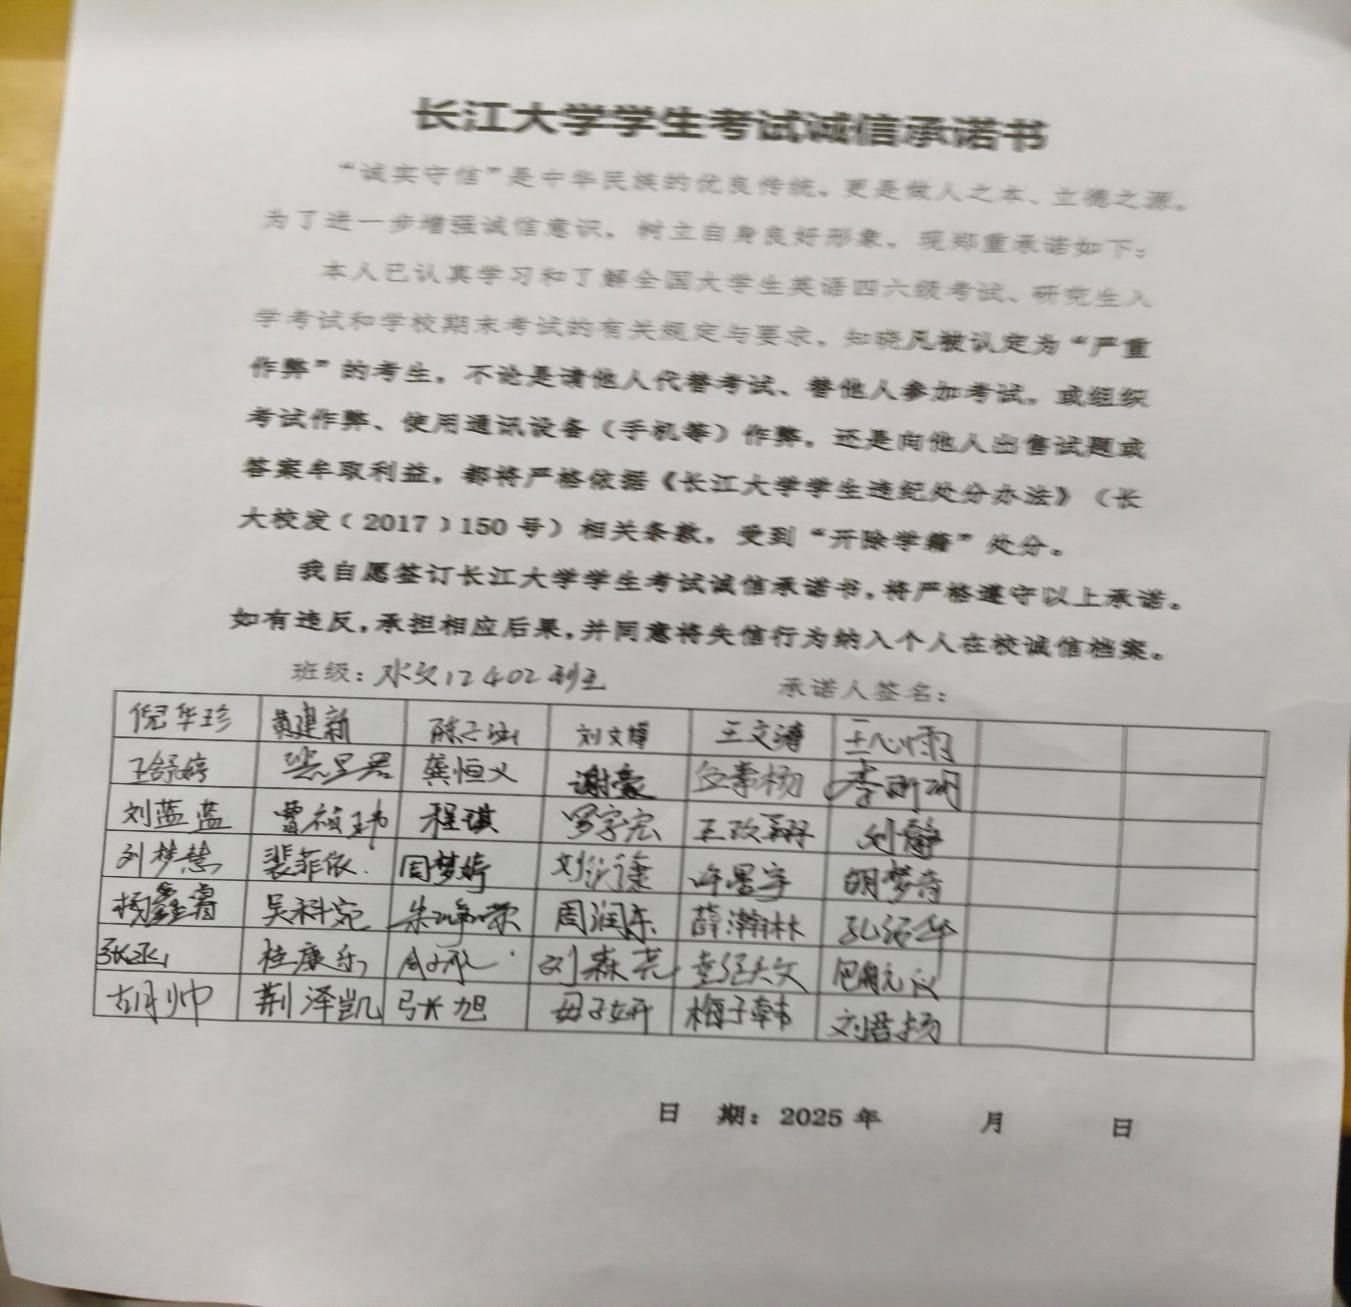 长江大学学生考试诚信承诺书
“诚实守信”是中华民族的优良传统，更是做人之本、立德之源。
为了进一步增强诚信意识，树立自身良好形象，现郑重承诺如下：
本人已认真学习和了解全国大学生英语四六级考试、研究生入
学考试和学校期末考试的有关规定与要求，知晓凡被认定为“严重
作弊”的考生，不论是请他人代替考试、替他人参加考试，或组织
考试作弊、使用通讯设备（手机等）作弊，还是向他人出售试题或
答案牟取利益，都将严格依据《长江大学学生违纪处分办法》（长
大校发〔2017〕150 号）相关条款，受到“开除学籍”处分。
我自愿签订长江大学学生考试诚信承诺书，将严格遵守以上承诺。
如有违反，承担相应后果，并同意将失信行为纳入个人在校诚信档案。
班级：水文12402班 承诺人签名：
倪华珍 黄建新 刘文博 王文涛 王心雨
王舒婷 龚恒义 谢豪
刘蓝蓝 曹祯玮 程琪 罗宇宏 王政翔 刘静
刘梦慧 裴菲依 周梦婷 许墨宇 胡梦奇
杨鑫睿 吴科宛 周润东 薛瀚林
桂康乐 刘森亮
胡帅 荆泽凯 张旭 毋子妍 梅子韩 刘君扬
日 期：2025 年 月 日